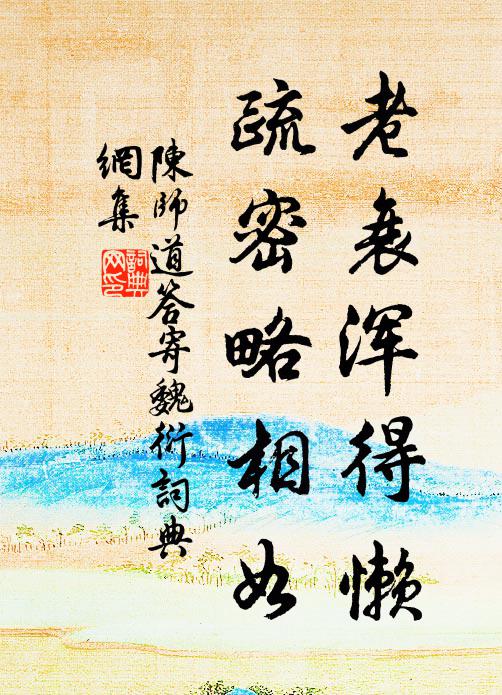 老衰浑得懒
疏密略相如
陳師道答寄魏衍詞典
網集
詞典
网印